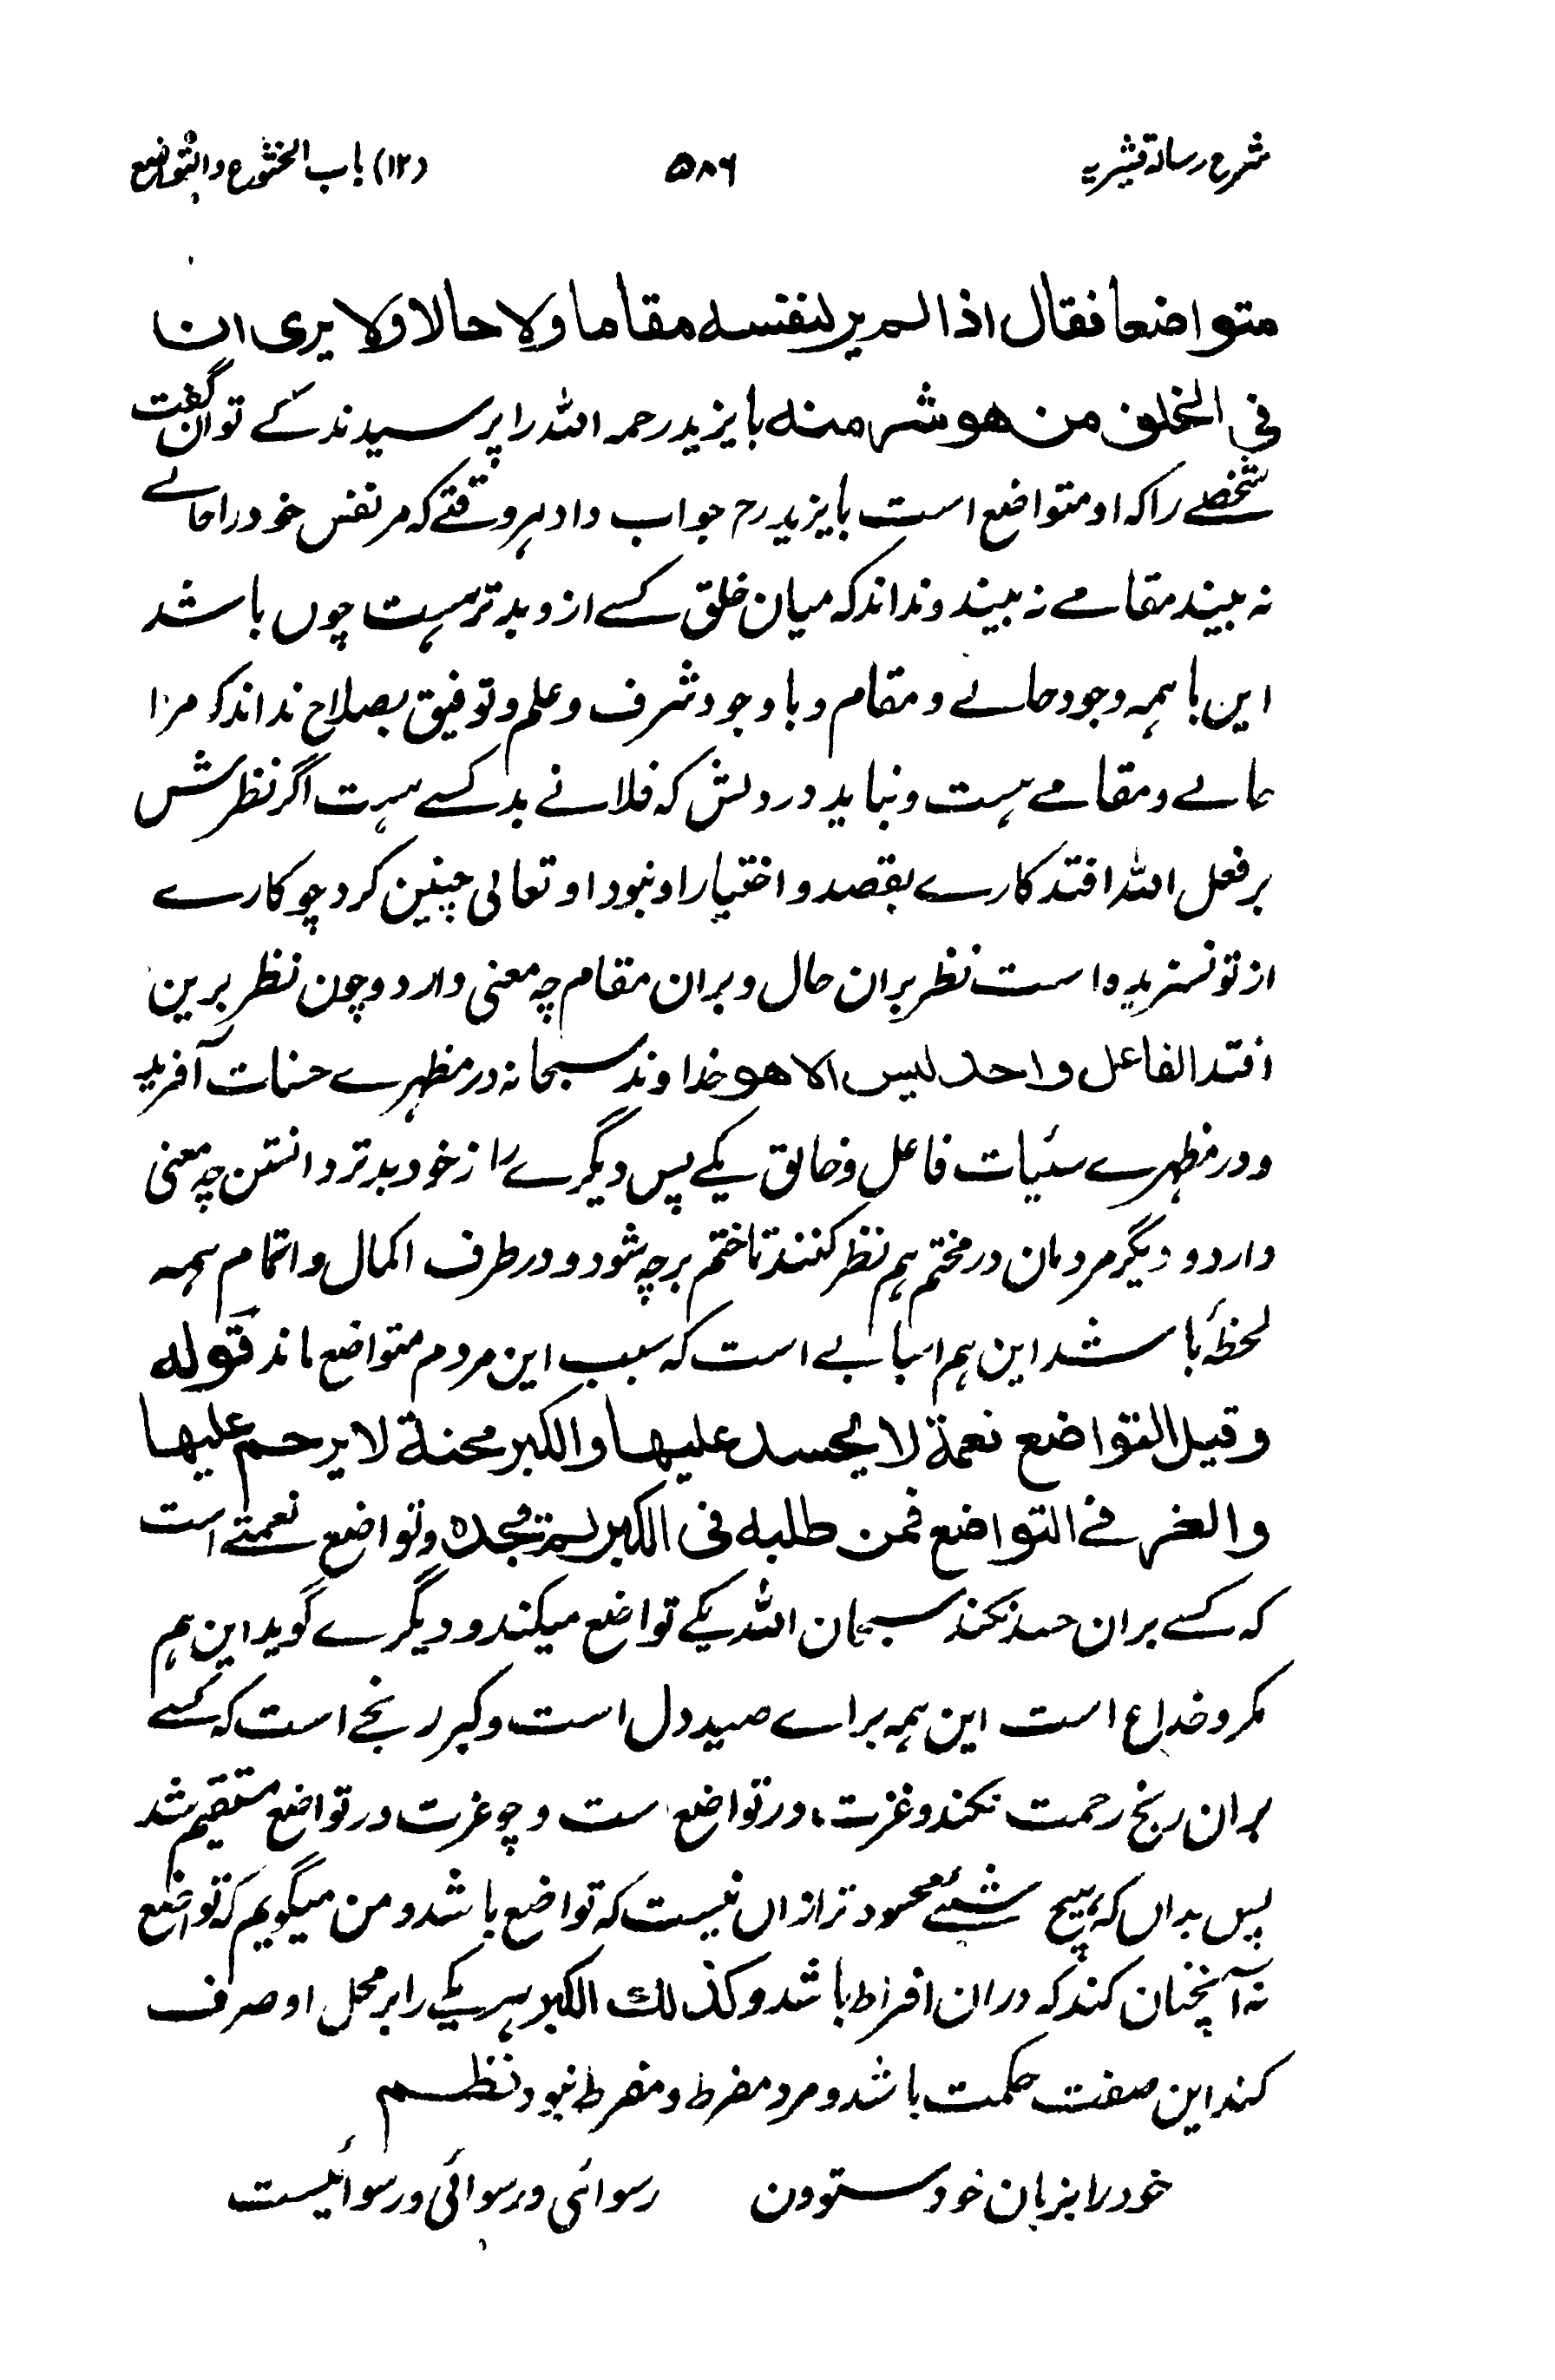 شرح رسالہ قشیریہ ۵۸۶ (۱۲) باب الخشوع والتواضع
متواضعا فقال اذا لم ير لنفسه مقاما ولا حالا ولا يرى ان
فى الخلق من هو شر منه بایزید رحمہ اللہ را پرسیدند کے توان گفت
شخصے را کہ او متواضع است بایزید رح جواب داد ہر وقتے کہ مر نفس خود را حالے
نہ بیند مقامے نہ بیند و نداند کہ میان خلق کسے از و بدتر ہست چوں باشد
این با ہمہ وجود حالے و مقام و با وجود شرف و علم و توفیق بصلاح نداند کہ مرا
حالے و مقامے ہست و نباید در دلش کہ فلانے بد کسے ہست اگر نظرش
بر فعل اللہ افتد کارے بقصد و اختیار او نبود او تعالی چنین کرد چو کارے
از تو نسزیده است نظر بران حال و بران مقام چہ معنی دارد و چون نظر برین
افتد الفاعل واحد ليس الا هو خداوند سبحانہ در مظہرے حسنات آفرید
و در مظہرے سئیات فاعل و خالق یکے پس دیگرے را از خود بدتر دانستن چہ معنی
دارد و دیگر مردمان در مختم ہم نظر کنند تا ختم بر چہ شود و در طرف اکمال و اتمام ہمہ
لحظۂ باشد این ہم اسبابے است کہ سبب این مردم متواضع اند قوله
وقيل التواضع نعمة لا يحسد عليها والكبر محنة لا يرحم عليها
والعز فے التواضع فمن طلبه فى الكبر لم يجده و تواضع نعمتے است
کہ کسے بران حسد نکند سبحان اللہ یکے تواضع میکند و دیگرے گوید این ہم
مکر و خداع است این ہمہ براے صید دل است و کبر رنجے است کہ کسے
بران رنج رحمت نکند و عزت در تواضع است و چو عزت در تواضع مستقیم شد
پس بداں کہ ہیچ شیئے محمود تر ازاں نیست کہ تواضع باشد و من میگویم کہ تواضع
نہ آنچنان کند کہ دران افراط باشد و كذلك الكبر ہر یکے را بر محل او صرف
کند این صفت حکمت باشد و مرد مفرط و مفرط نبود نظم
خود را بزبان خود ستوودن رسوائی و رسوائی و رسوائیست